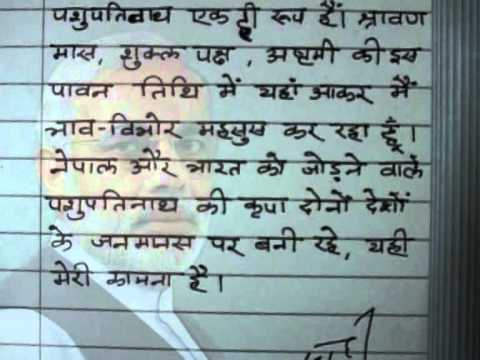 पशुपतिनाथ एक ही रूप हैं। श्रावण
मास, शुक्ल पक्ष, अष्टमी की इस
पावन तिथि में यहां आकर मैं
भाव-विभोर महसुस कर रहा हूँ।
नेपाल और भारत को जोड़ने वाले
पशुपतिनाथ की कृपा दोनों देशों
के जनमानस पर बनी रहे, यही
मेरी कामना है।